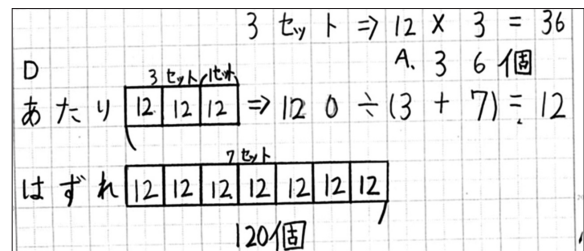 3セット⇒12×3=36
A. 36個
D
3セット 1セット
あたり 12 12 12 ⇒120÷(3+7)=12
7セット
はずれ 12 12 12 12 12 12 12
120個